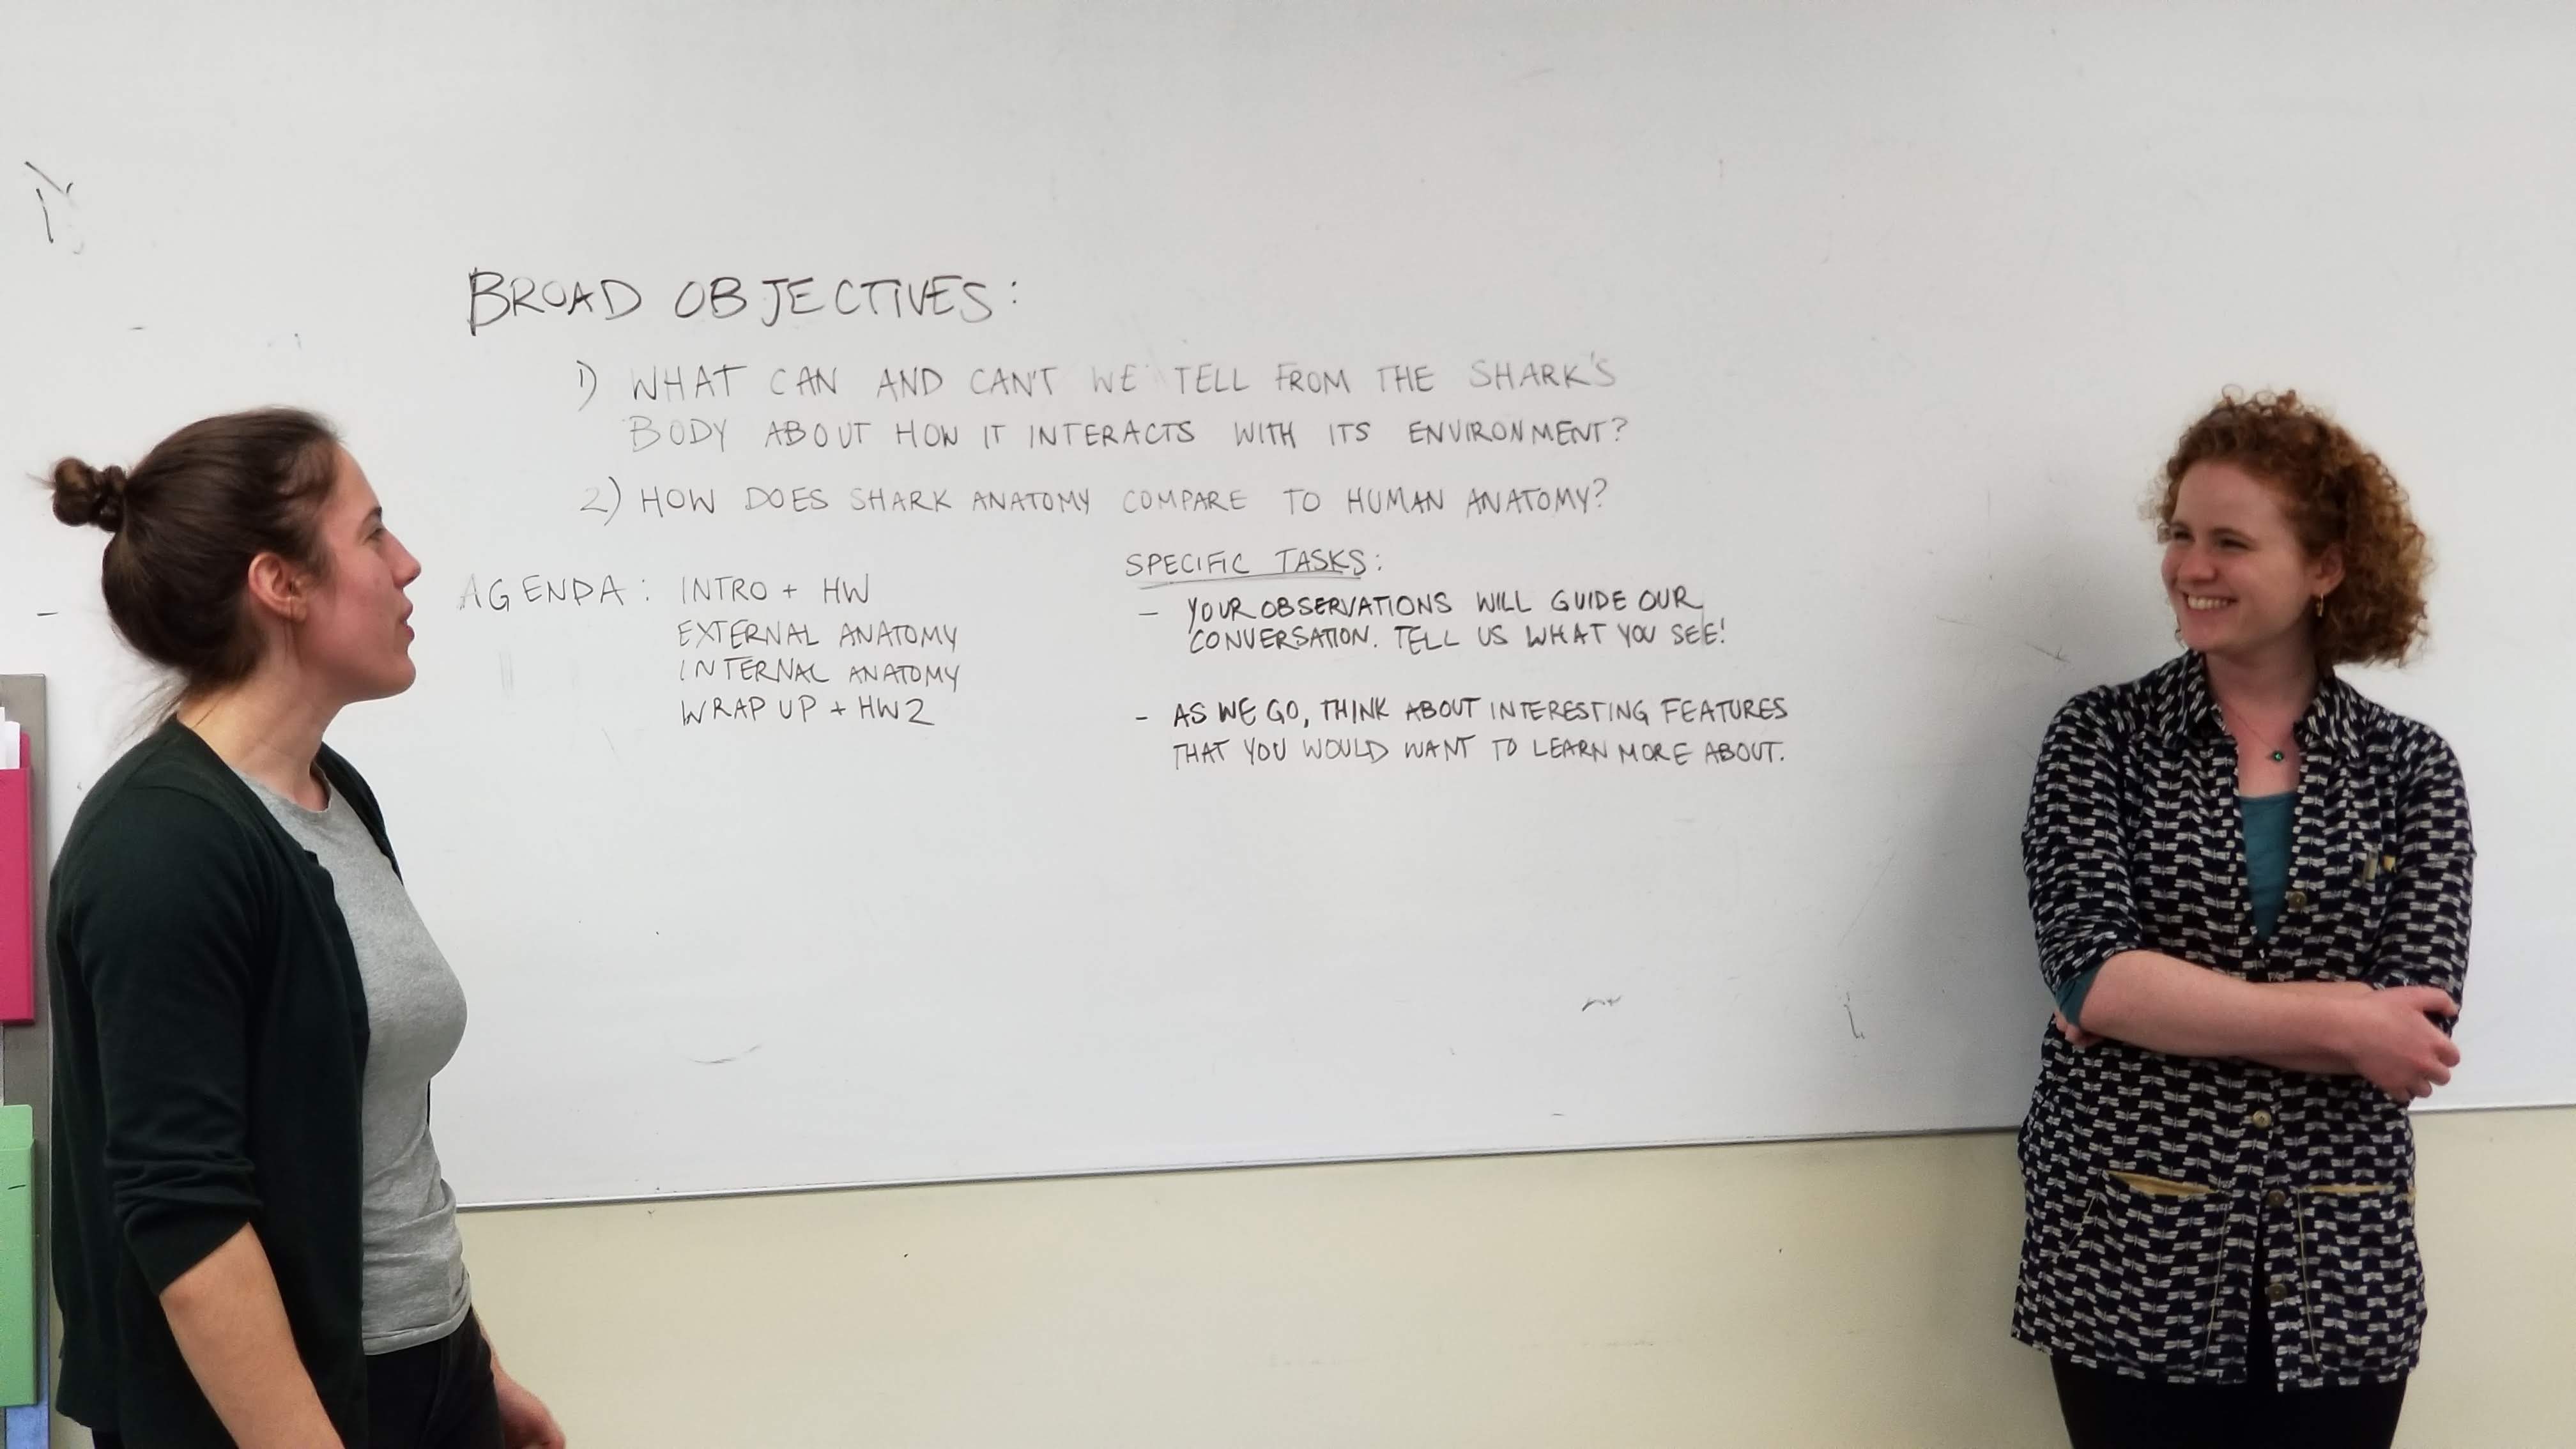 BROAD OBJECTIVES:
1) WHAT CAN AND CAN'T WE TELL FROM THE SHARK'S
BODY ABOUT HOW IT INTERACTS WITH ITS ENVIRONMENT?
2) HOW DOES SHARK ANATOMY COMPARE TO HUMAN ANATOMY?
AGENDA: INTRO + HW
EXTERNAL ANATOMY
INTERNAL ANATOMY
WRAP UP + HW2
SPECIFIC TASKS:
- YOUR OBSERVATIONS WILL GUIDE OUR
CONVERSATION. TELL US WHAT YOU SEE!
- AS WE GO, THINK ABOUT INTERESTING FEATURES
THAT YOU WOULD WANT TO LEARN MORE ABOUT.